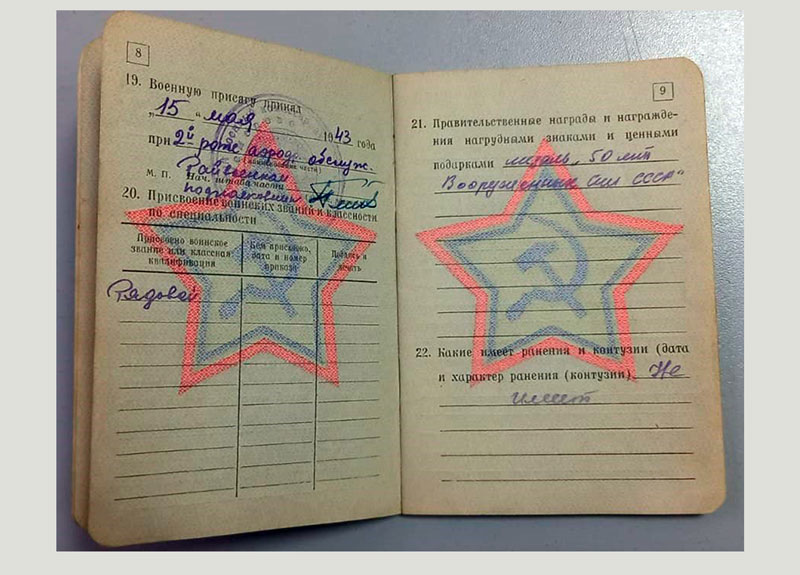 8
19. Военную присягу принял
„15" мая 1943 года
при 2й роте аэродр. обслуж.
(наименование части)
Райвоенком
М. П. Нач. штаба части
подполковник
20. Присвоение воинских званий и классности
по специальности
Присвоено воинское звание или классная квалификация
Кем присвоено, дата и номер приказа
Подпись и печать
Рядовой
9
21. Правительственные награды и награжде-
ния нагрудными знаками и ценными
подарками медаль „50 лет
Вооруженных Сил СССР"
22. Какие имеет ранения и контузии (дата
и характер ранения (контузии) Не
имеет